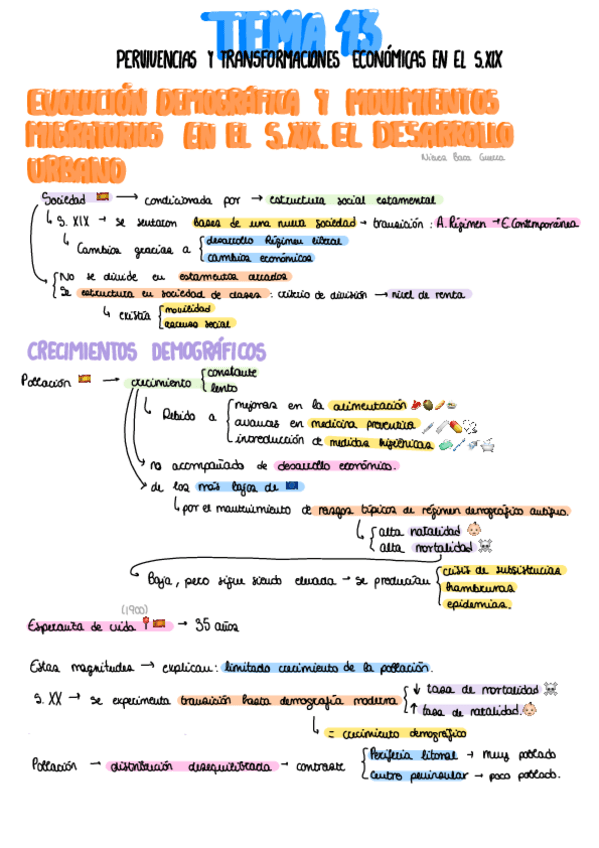 TEMA 13
PERVIVENCIAS Y TRANSFORMACIONES ECONÓMICAS EN EL S.XIX
EVOLUCIÓN DEMOGRÁFICA Y MOVIMIENTOS
MIGRATORIOS EN EL S.XIX. EL DESARROLLO
URBANO
Nisea Baca Guerra
Sociedad → condicionada por → estructura social estamental
S. XIX → se sentaron bases de una nueva sociedad → transición: A. Régimen → E. Contemporánea
Cambios gracias a desarrollo Régimen liberal
cambios económicos
No se divide en estamentos cerrados
Se estructura en sociedad de clases: criterio de división → nivel de renta
existía movilidad
ascenso social
CRECIMIENTOS DEMOGRÁFICOS
Población → crecimiento constante
lento
Debido a mejoras en la alimentación
avances en medicina preventiva
introducción de medidas higiénicas
no acompañado de desarrollo económico.
de los más bajos de
por el mantenimiento de rasgos típicos de régimen demográfico antiguo.
alta natalidad
alta mortalidad
Baja, pero sigue siendo elevada → se producían crisis de subsistencias
hambrunas
epidemias.
(1900)
Esperanza de vida → 35 años
Estas magnitudes → explican: limitado crecimiento de la población.
S. XX → se experimenta transición hasta demografía moderna ↓ tasa de mortalidad
↑ tasa de natalidad.
= crecimiento demográfico
Población → distribución desequilibrada → contraste Periferia litoral → muy poblado
Centro peninsular → poco poblado.